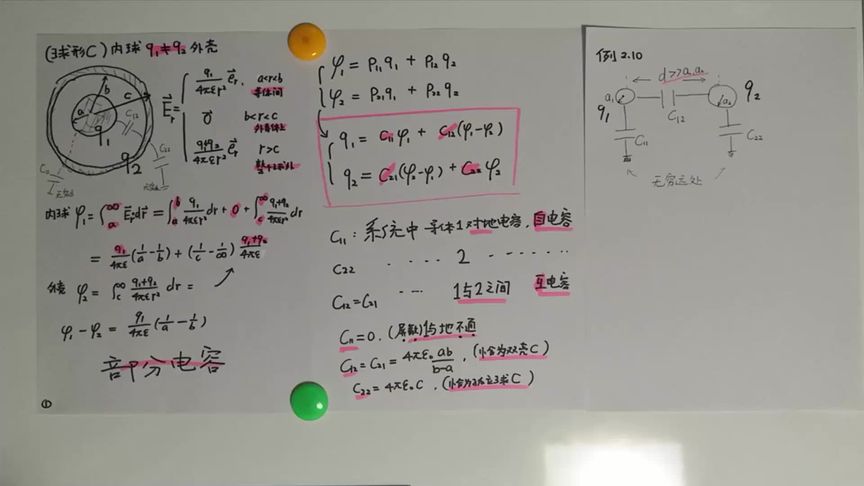 (球形C) 内球 q₁≠q₂ 外壳
a
b
c
q₁
q₂
C₁₂
C₂₂
E⃗r = { q₁/4πεr² e⃗r, a<r<b 导体间
0 b<r<c
q₁+q₂/4πεr² e⃗r r>c
内球 φ₁ = ∫ₐ^∞ E⃗r dr⃗ = ∫ₐᵇ q₁/4πεr² dr + 0 + ∫c^∞ q₁+q₂/4πεr² dr
= q₁/4πε (1/a - 1/b) + (1/c - 1/∞) q₁+q₂/4πε
外壳 φ₂ = ∫c^∞ q₁+q₂/4πεr² dr =
φ₁ - φ₂ = q₁/4πε (1/a - 1/b)
部分电容
①
φ₁ = P₁₁q₁ + P₁₂q₂
φ₂ = P₂₁q₁ + P₂₂q₂
q₁ = C₁₁φ₁ + C₁₂(φ₁-φ₂)
q₂ = C₂₁(φ₂-φ₁) + C₂₂φ₂
C₁₁: 系统中导体1对地电容, 自电容
C₂₂ ···· 2 ·······
C₁₂=C₂₁ ··· 1与2之间 互电容
C₁₁=0. (屏蔽) 1与地不通
C₁₂ = C₂₁ = 4πε₀ ab/b-a, (恰为双壳C)
C₂₂ = 4πε₀c, (恰为孤立球C)
例2.10
d>>a₁,a₂
a₁
q₁
C₁₂
a₂
q₂
C₁₁
C₂₂
无穷远处